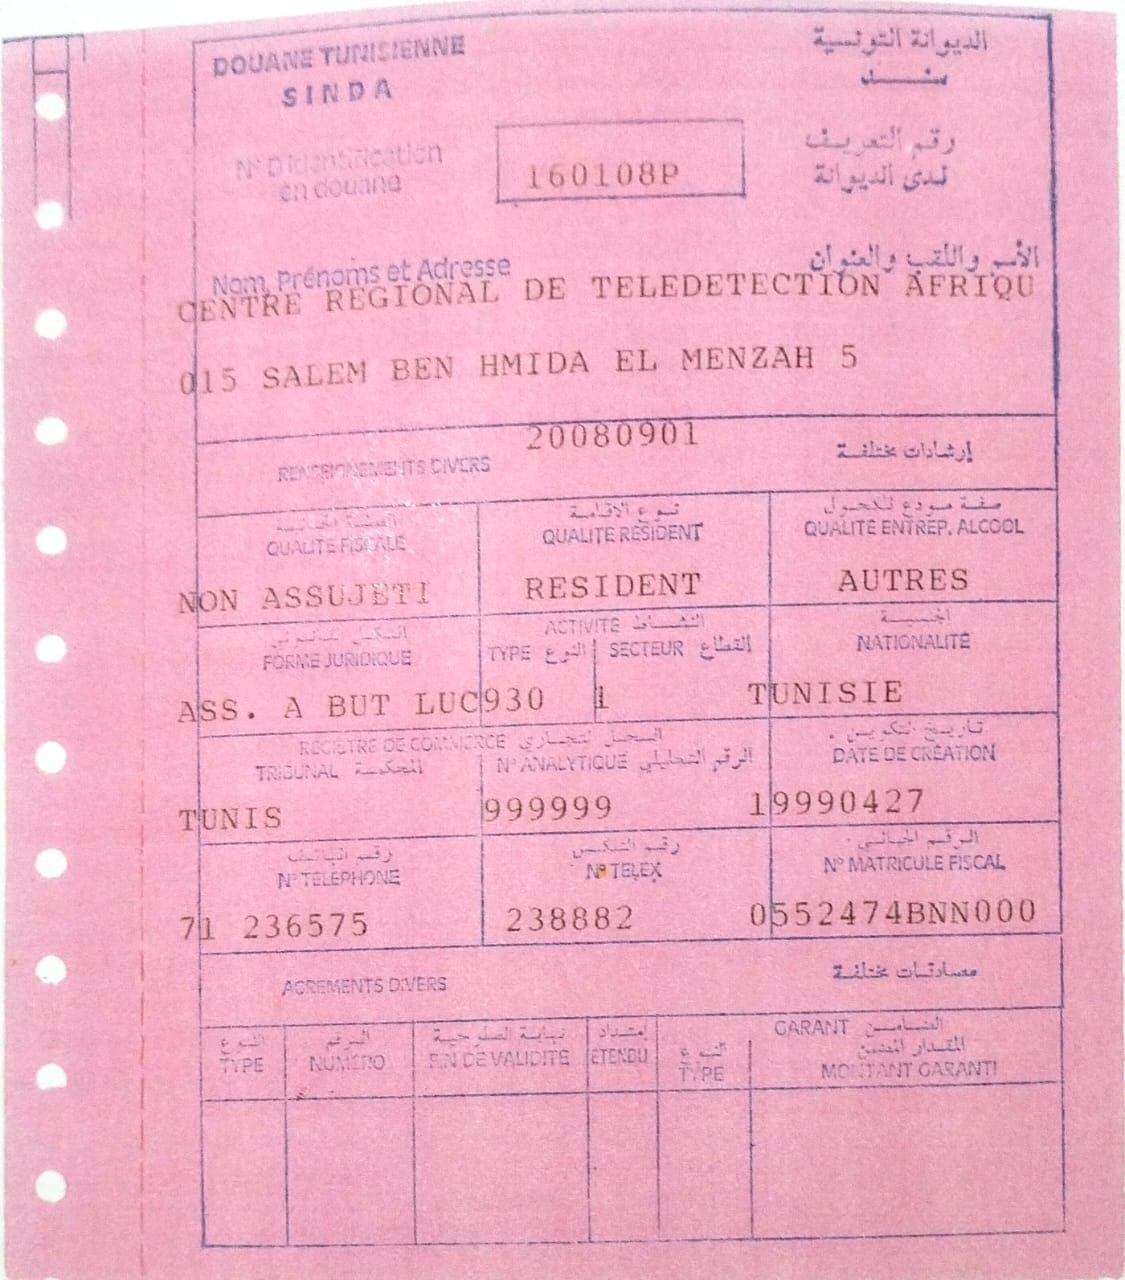 DOUANE TUNISIENNE الديوانة التونسية
SINDA سند
N° D'identification en douane 160108P رقم التعريف لدى الديوانة
Nom, Prénoms et Adresse الأسم واللقب والعنوان
CENTRE REGIONAL DE TELEDETECTION AFRIQU
015 SALEM BEN HMIDA EL MENZAH 5
20080901
RENSEIGNEMENTS DIVERS إرشادات مختلفة
الصفة الجبائية نوع الإقامة صفة مودع للكحول
QUALITE FISCALE QUALITE RESIDENT QUALITE ENTREP. ALCOOL
NON ASSUJETI RESIDENT AUTRES
الشكل القانوني ACTIVITE النشاط الجنسية
FORME JURIDIQUE TYPE النوع SECTEUR القطاع NATIONALITE
ASS. A BUT LUC930 1 TUNISIE
REGISTRE DE COMMERCE السجل التجاري تاريخ التكوين
TRIBUNAL المحكمة N° ANALYTIQUE الرقم التحليلي DATE DE CREATION
TUNIS 999999 19990427
رقم الهاتف رقم التلكس الرقم الجبائي
N° TELEPHONE N° TELEX N° MATRICULE FISCAL
71 236575 238882 0552474BNN000
AGREMENTS DIVERS مصادقات مختلفة
النوع الرقم نهاية الصلوحية إمتداد GARANT الضامن
TYPE NUMERO FIN DE VALIDITE ETENDU النوع TYPE المقدار المضمن MONTANT GARANTI